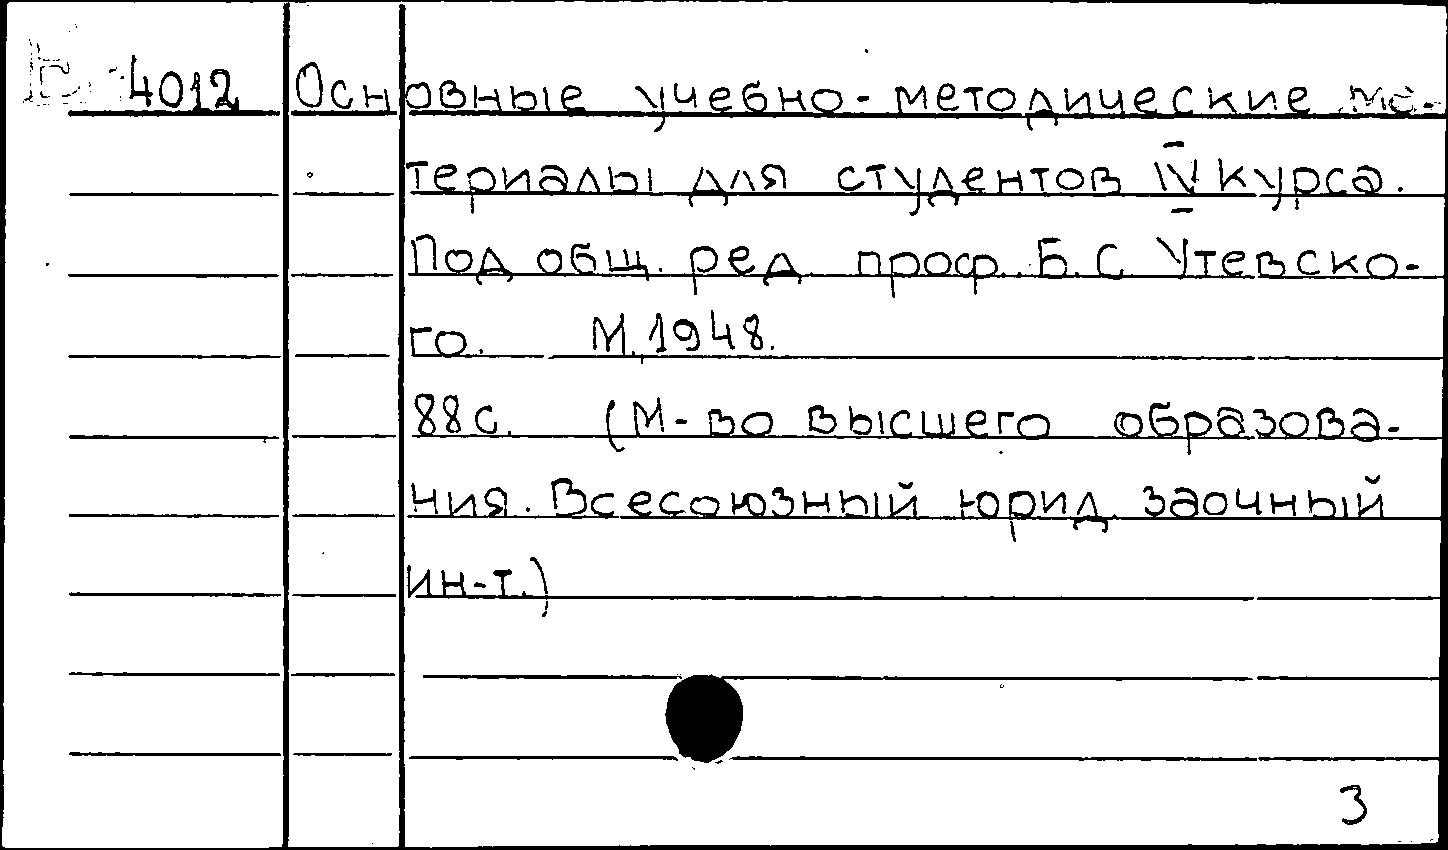 4012 Основные учебно-методические ма-
териалы для студентов IV курса.
Под общ. ред. проф. Б.С. Утевско-
го. М., 1948.
88с. (М-во высшего образова-
ния. Всесоюзный юрид. заочный
ин-т.)
3